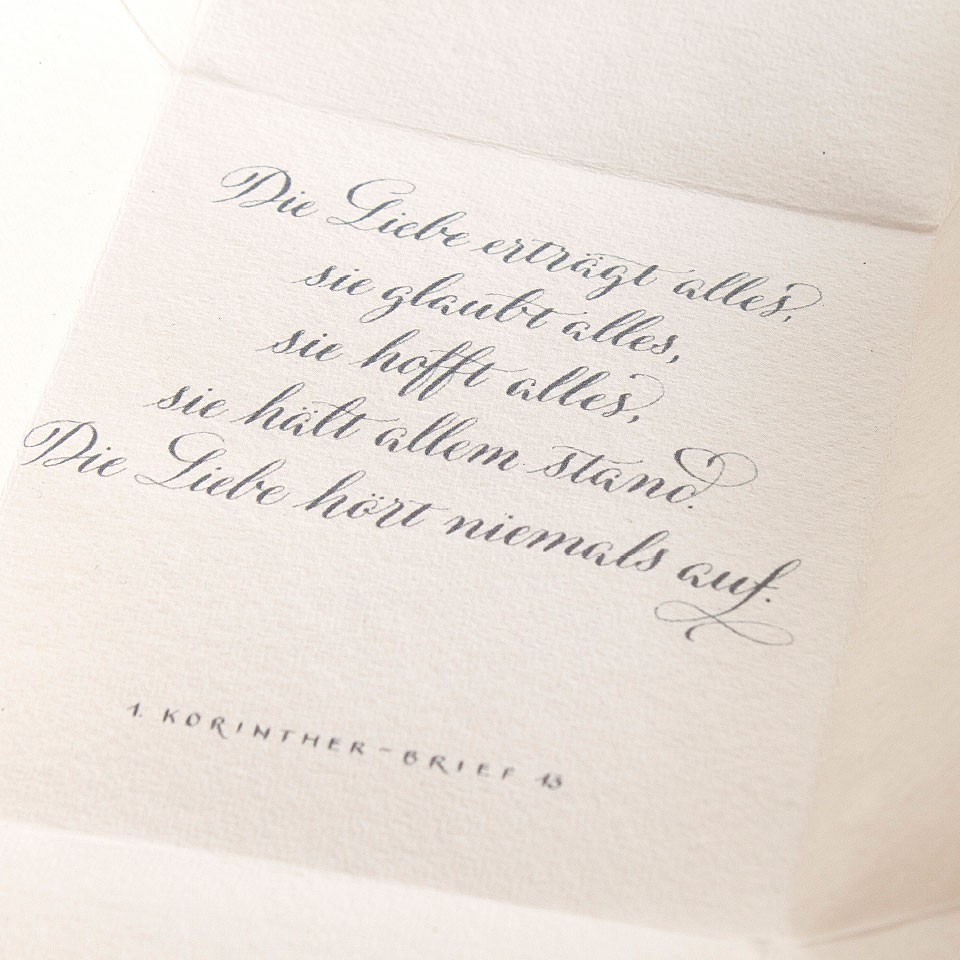 Die Liebe erträgt alles,
sie glaubt alles,
sie hofft alles,
sie hält allem stand.
Die Liebe hört niemals auf.
1. KORINTHER-BRIEF 13